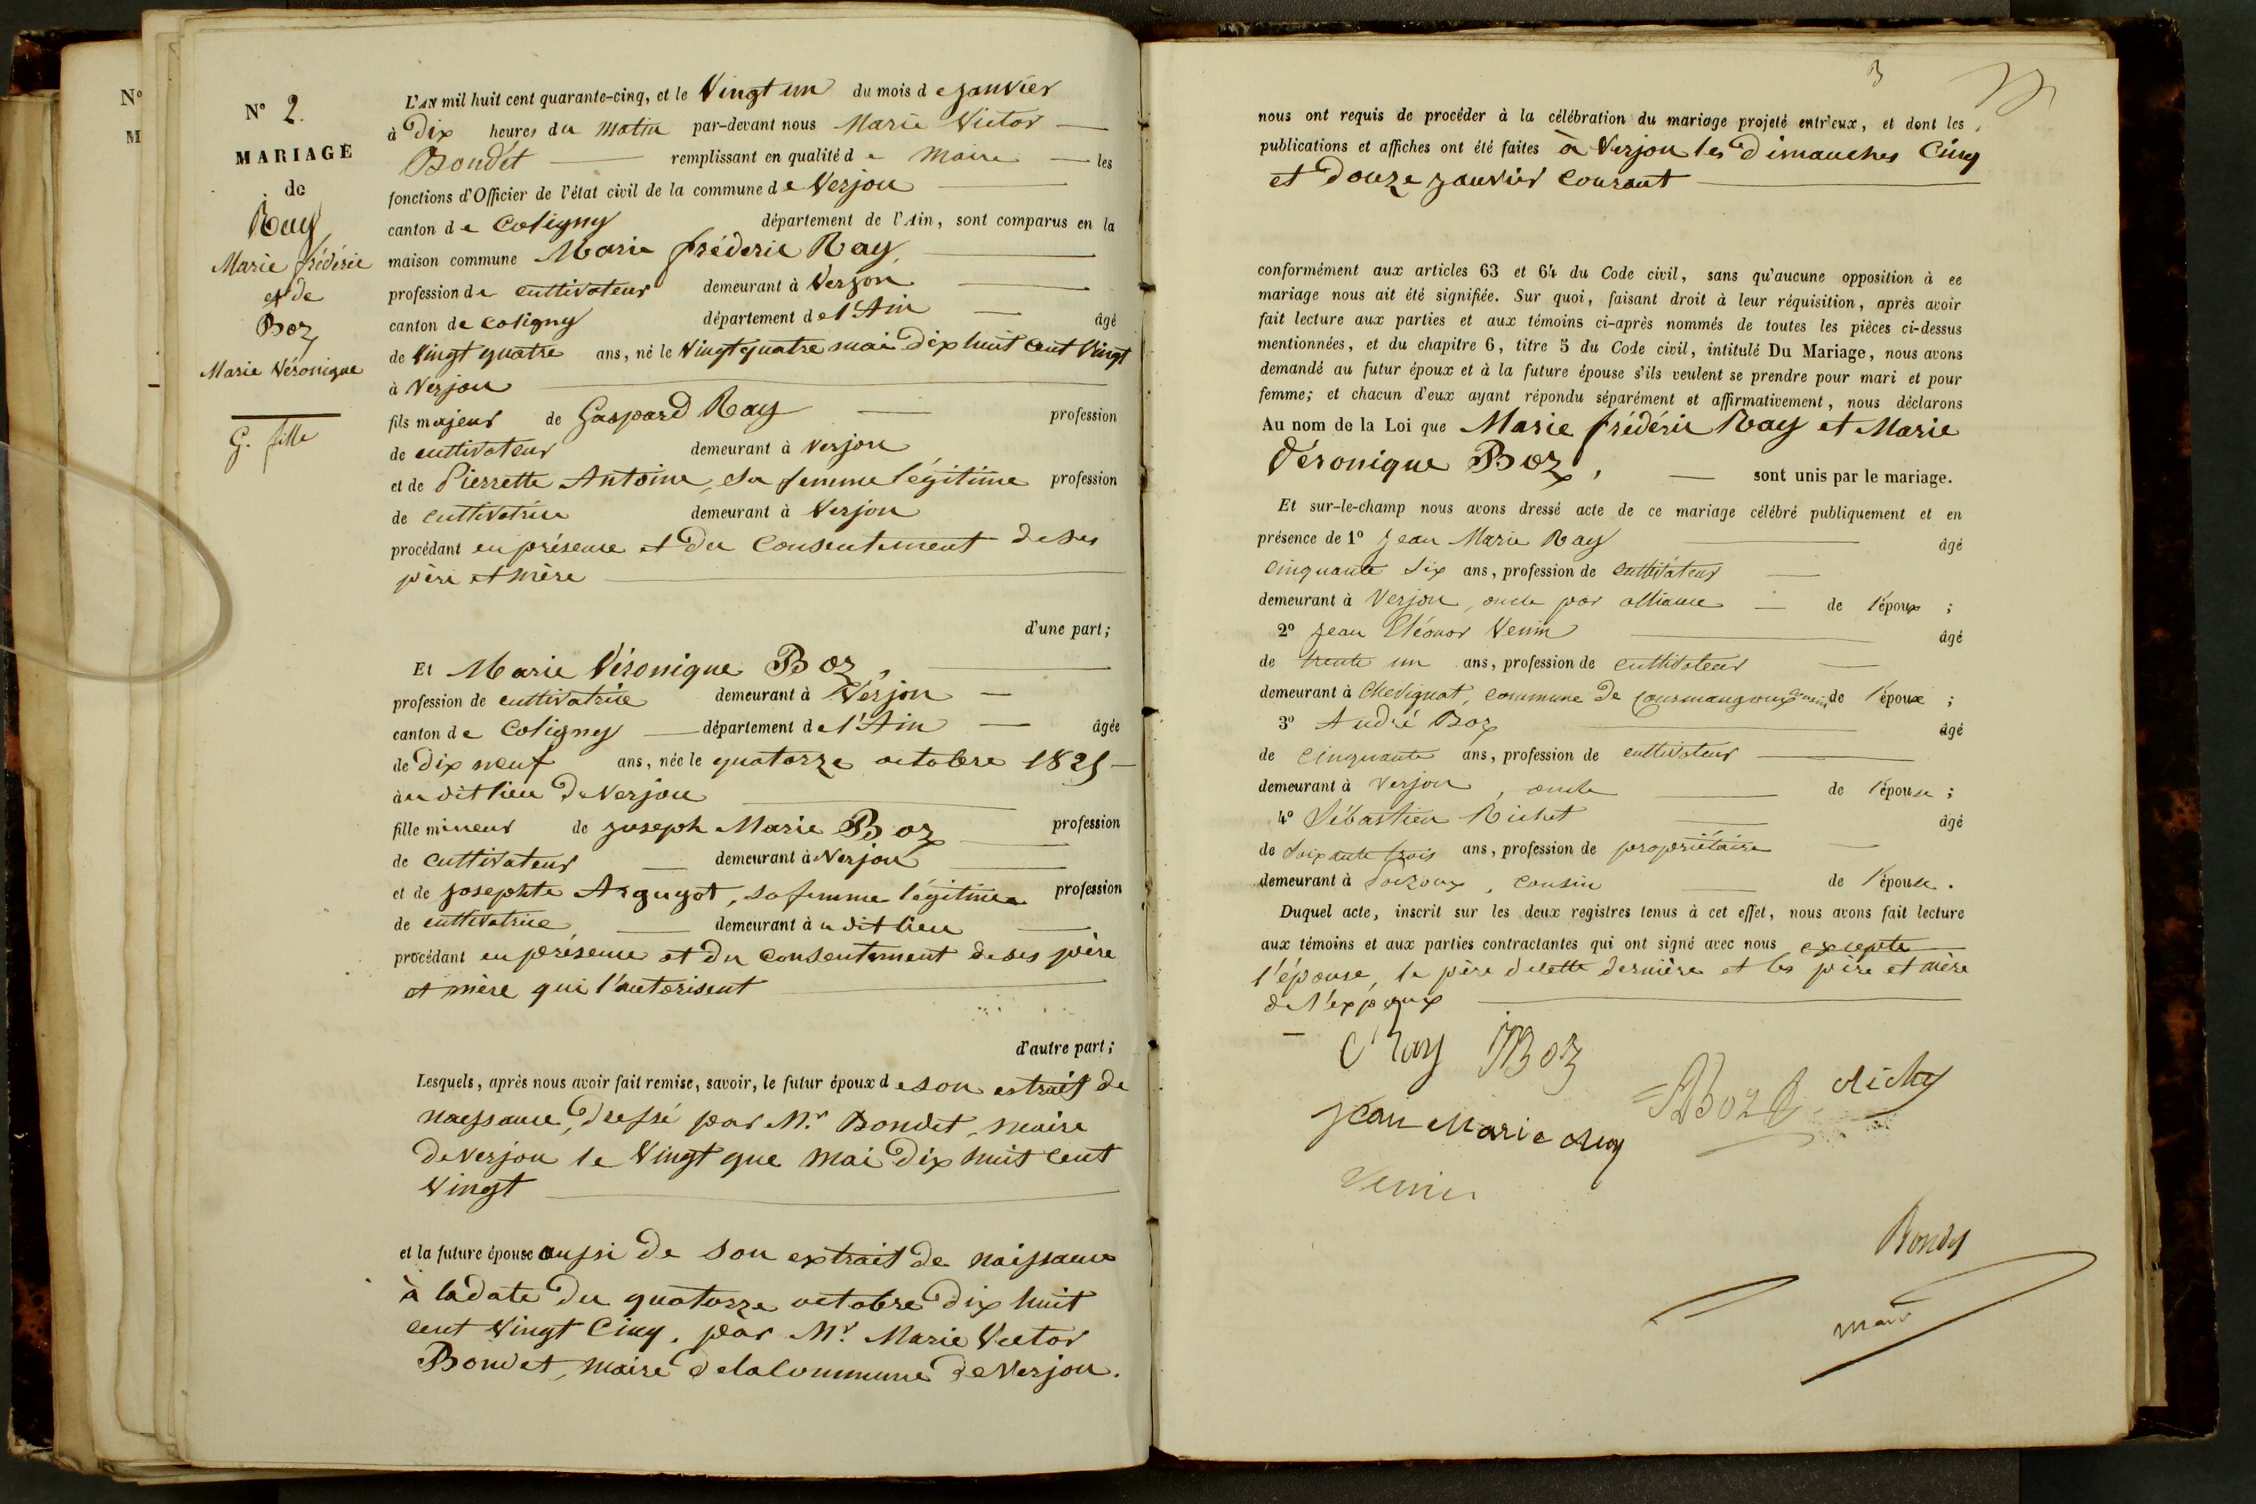 N°
M
N° 2.
MARIAGE
de
Ray
Marie frédéric
et de
Boz
Marie Véronique
G. fille
L'AN mil huit cent quarante-cinq, et le Vingt un du mois de janvier
à Dix heures du matin par-devant nous Marie Victor
Bondet remplissant en qualité de Maire les
fonctions d'Officier de l'état civil de la commune de Verjon
canton de Coligny département de l'Ain, sont comparus en la
maison commune Marie frédéric Ray,
profession de cultivateur demeurant à Verjon
canton de coligny département de l'Ain âgé
de Vingt quatre ans, né le Vingt quatre mai Dix huit cent Vingt
à Verjon
fils majeur de Gaspard Ray profession
de cultivateur demeurant à verjon
et de Pierrette Antoine, sa femme légitime profession
de cultivatrice demeurant à Verjon
procédant en présence et du Consentement de ses
père et mère
d'une part;
Et Marie Véronique Boz,
profession de cultivatrice demeurant à Verjon
canton de Coligny département de l'Ain âgée
de Dix neuf ans, née le quatorze octobre 1825
au dit lieu de Verjon
fille mineur de joseph Marie Boz profession
de cultivateur demeurant à Verjon
et de josephte Arguyot, sa femme légitime profession
de cultivatrice demeurant au dit lieu
procédant en présence et du consentement de ses père
et mère qui l'autorisent
d'autre part;
Lesquels, après nous avoir fait remise, savoir, le futur époux de son extrait de
naissance, dressé par Mr Bondet, maire
de verjon le Vingt que mai Dix huit Cent
Vingt
et la future épouse aussi de son extrait de naissance
à la date du quatorze octobre Dix huit
cent Vingt Cinq, par Mr Marie Victor
Bondet, maire de la Commune de Verjon.
3
nous ont requis de procéder à la célébration du mariage projeté entr'eux, et dont les
publications et affiches ont été faites à Verjon les Dimanches Cinq
et Douze janvier courant
conformément aux articles 63 et 64 du Code civil, sans qu'aucune opposition à ce
mariage nous ait été signifiée. Sur quoi, faisant droit à leur réquisition, après avoir
fait lecture aux parties et aux témoins ci-après nommés de toutes les pièces ci-dessus
mentionnées, et du chapitre 6, titre 5 du Code civil, intitulé Du Mariage, nous avons
demandé au futur époux et à la future épouse s'ils veulent se prendre pour mari et pour
femme; et chacun d'eux ayant répondu séparément et affirmativement, nous déclarons
Au nom de la Loi que Marie frédéric Ray et Marie
Véronique Boz, sont unis par le mariage.
Et sur-le-champ nous avons dressé acte de ce mariage célébré publiquement et en
présence de 1° Jean Marie Ray âgé
cinquante six ans, profession de cultivateur
demeurant à Verjon, oncle par alliance de l'époux ;
2° Jean Eléonor Venin âgé
de trente un ans, profession de cultivateur
demeurant à Chevignat, commune de Courmangoux cousin de l'époux ;
3° André Boz âgé
de Cinquante ans, profession de cultivateur
demeurant à Verjon, oncle de l'épouse ;
4° Sébastien Richet âgé
de Soixante trois ans, profession de propriétaire
demeurant à , cousin de l'épouse.
Duquel acte, inscrit sur les deux registres tenus à cet effet, nous avons fait lecture
aux témoins et aux parties contractantes qui ont signé avec nous excepté
l'épouse, le père de cette dernière et les père et mère
de l'expoux
Ray JBoz
ABoz Richet
Jean Marie Ray
Venin
Bondet
maire